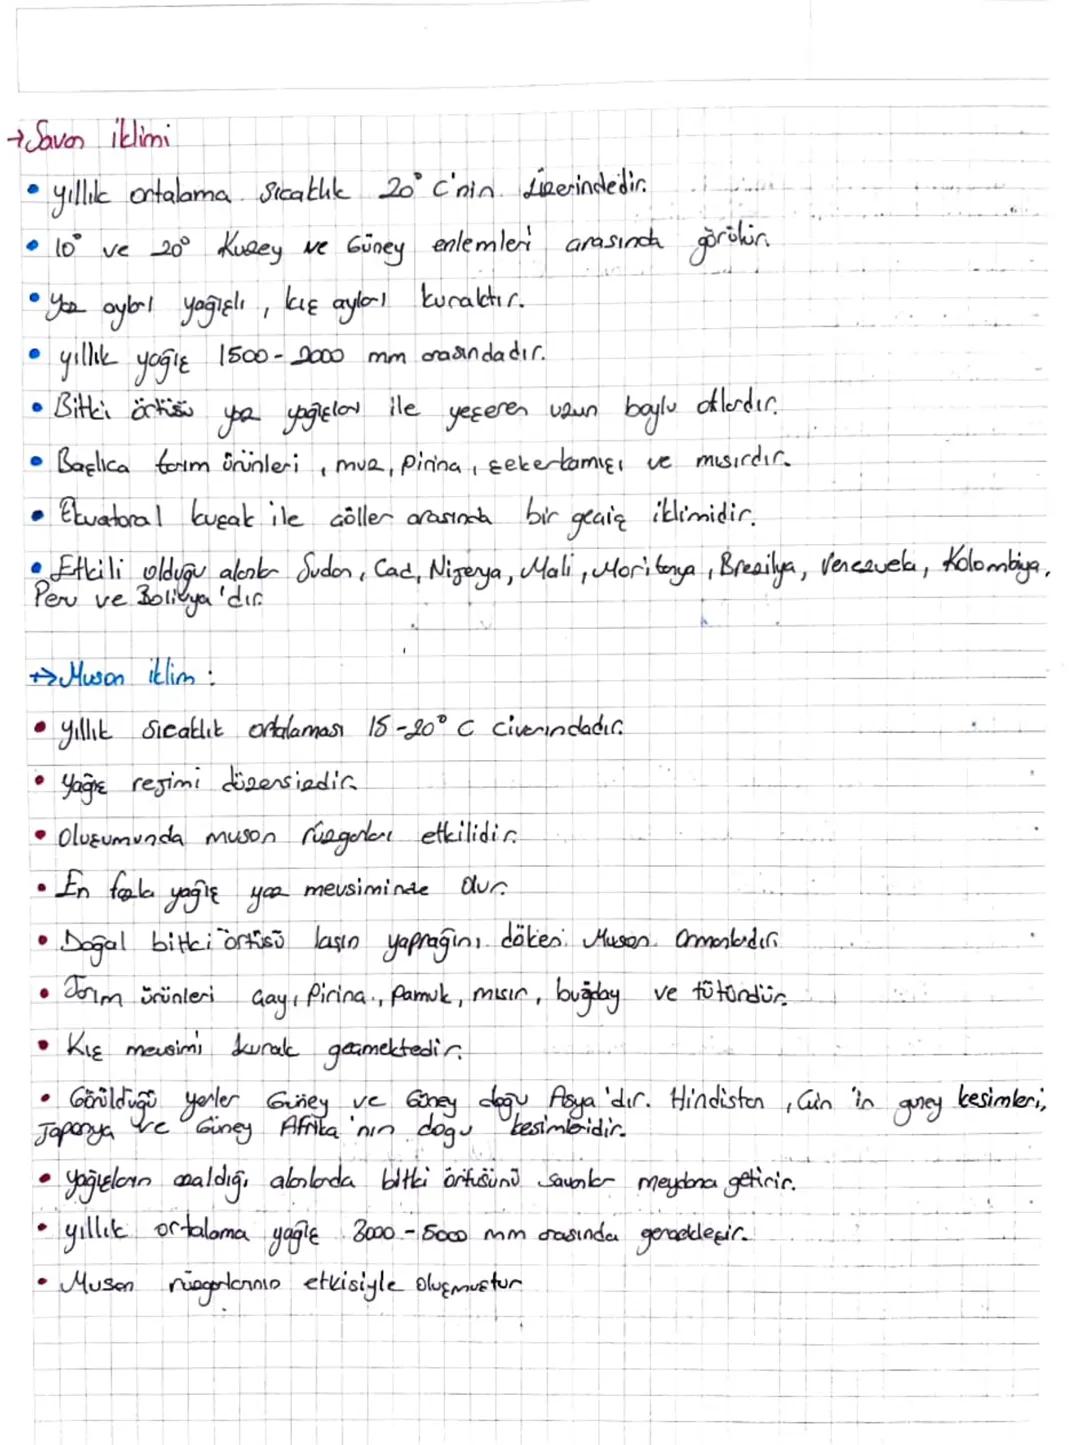 → Savan iklimi
• yıllık ortalama sıcaklık 20° C'nin üzerindedir.
• 10° ve 20° Kuzey ve Güney enlemleri arasında görülür.
• Yaz ayları yağışlı, kış ayları kuraktır.
• yıllık yağış 1500-2000 mm arasındadır.
• Bitki örtüsü yaz yağışları ile yeşeren uzun boylu otlardır.
• Başlıca tarım ürünleri, muz, pirinç, şekerkamışı ve mısırdır.
• Ekvatoral kuşak ile çöller arasında bir geçiş iklimidir.
• Etkili olduğu alanlar Sudan, Çad, Nijerya, Mali, Moritanya, Brezilya, Venezuela, Kolombiya,
Peru ve Bolivya'dır.
→ Muson iklim :
• yıllık sıcaklık ortalaması 15-20° C civarındadır.
• Yağış rejimi düzensizdir.
• Oluşumunda muson rüzgarları etkilidir.
• En fazla yağış yaz mevsiminde olur.
• Doğal bitki örtüsü kışın yaprağını döken Muson Ormanlarıdır.
• Tarım ürünleri çay, Pirinç, pamuk, mısır, buğday ve tütündür.
• Kış mevsimi kurak geçmektedir.
• Görüldüğü yerler Güney ve Güney doğu Asya'dır. Hindistan, Çin'in güney kesimleri,
Japonya ve Güney Afrika'nın doğu kesimleridir.
• Yağışların azaldığı alanlarda bitki örtüsünü savanlar meydana getirir.
• yıllık ortalama yağış 3000-5000 mm arasında gerçekleşir.
• Muson rüzgarlarının etkisiyle oluşmuştur